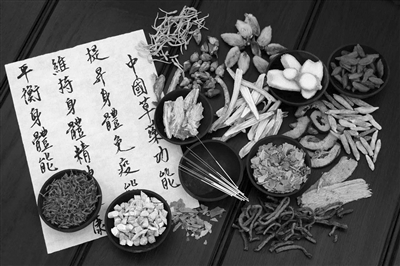 中國草藥功能
提昇身體免疫
維持身體精神康
平衡身體能